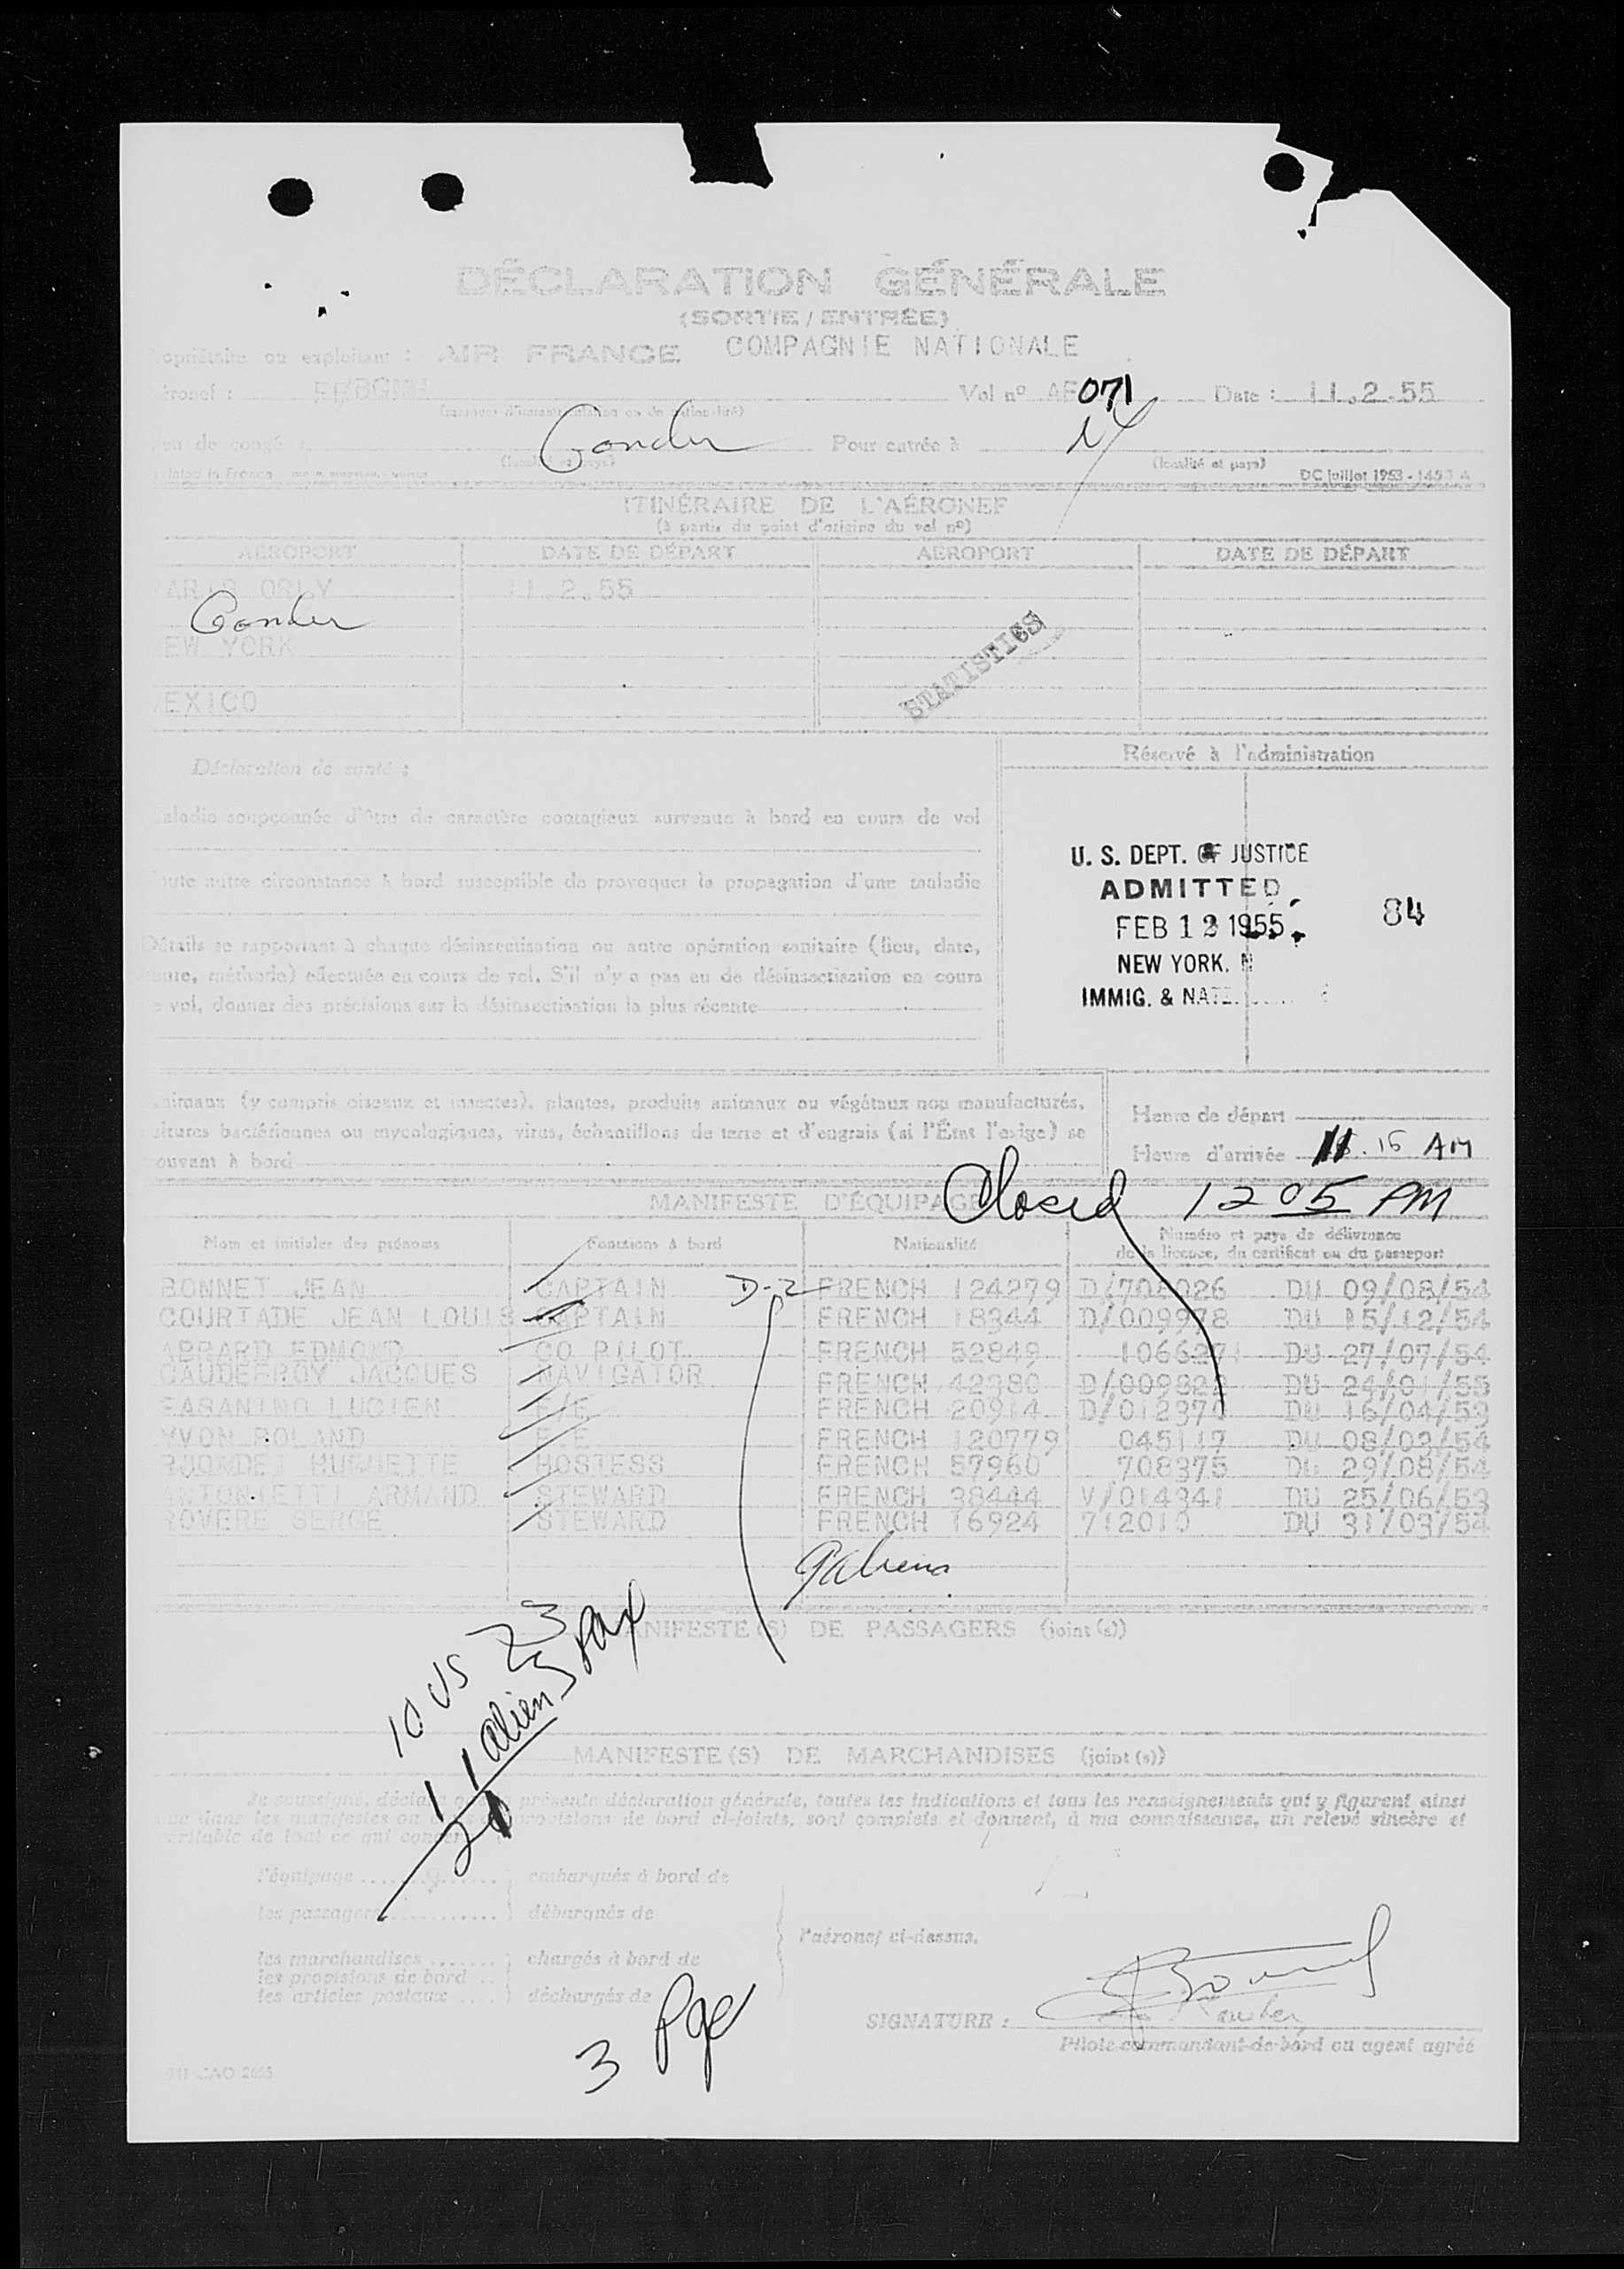 DÉCLARATION GÉNÉRALE
(SORTIE / ENTRÉE)
opriétaire ou exploitant : AIR FRANCE COMPAGNIE NATIONALE
éronef : Vol nº AF 071 Date : 11.2.55
eu de congé : Gander Pour entrée à NY
(localité et pays) (localité et pays)
Printed in France DC juillet 1953 - 1453 A
ITINÉRAIRE DE L'AÉRONEF
(à partir du point d'origine du vol nº)
AÉROPORT DATE DE DÉPART AÉROPORT DATE DE DÉPART
ARIS ORLY 11.2.55
Gander
EW YORK
STATISTICS
EXICO
Déclaration de santé :
Réservé à l'administration
aladie soupçonnée d'être de caractère contagieux survenue à bord en cours de vol
oute autre circonstance à bord susceptible de provoquer la propagation d'une maladie
Détails se rapportant à chaque désinsectisation ou autre opération sanitaire (lieu, date,
eure, méthode) effectuée en cours de vol. S'il n'y a pas eu de désinsectisation en cours
e vol, donner des précisions sur la désinsectisation la plus récente
U. S. DEPT. OF JUSTICE
ADMITTED
FEB 12 1955
84
NEW YORK, N
IMMIG. & NATZ.
nimaux (y compris oiseaux et insectes), plantes, produits animaux ou végétaux non manufacturés,
ultures bactériennes ou mycologiques, virus, échantillons de terre et d'engrais (si l'État l'exige) se
ouvant à bord
Heure de départ
Heure d'arrivée 11.15 AM
MANIFESTE D'ÉQUIPAGE Closed 12 05 PM
Nom et initiales des prénoms Fonctions à bord Nationalité Numéro et pays de délivrance
de la licence, du certificat ou du passeport
BONNET JEAN CAPTAIN D-2 FRENCH 124279 D/708026 DU 09/08/54
COURTADE JEAN LOUIS CAPTAIN FRENCH 18344 D/009978 DU 15/12/54
ABBARD EDMOND CO PILOT FRENCH 52849 DU 27/07/54
GAUDEFROY JACQUES NAVIGATOR FRENCH 42380 DU 24/01/55
FASANINO LUCIEN F/E FRENCH 20914 D/012370 DU 16/04/53
YVON ROLAND F.E FRENCH 120779 045117 DU 08/03/54
HUGUETTE HOSTESS FRENCH 57960 708375 DU 29/08/54
ANTONIETTI ARMAND STEWARD FRENCH 38444 V/014341 DU 25/06/53
ROVERE SERGE STEWARD FRENCH 16924 712010 DU 31/03/54
9 aliens
MANIFESTE(S) DE PASSAGERS (joint(s))
10 US 23 pax
11 aliens
21
MANIFESTE(S) DE MARCHANDISES (joint(s))
Je soussigné, déclare présente déclaration générale, toutes les indications et tous les renseignements qui y figurent ainsi
ue dans les manifestes ou provisions de bord ci-joints, sont complets et donnent, à ma connaissance, un relevé sincère et
éritable de tout ce qui concerne
l'équipage 9 embarqués à bord de
les passagers débarqués de
l'aéronef ci-dessus.
les marchandises chargés à bord de
les provisions de bord
les articles postaux déchargés de
3 Pge
SIGNATURE :
Pilote commandant de bord ou agent agréé